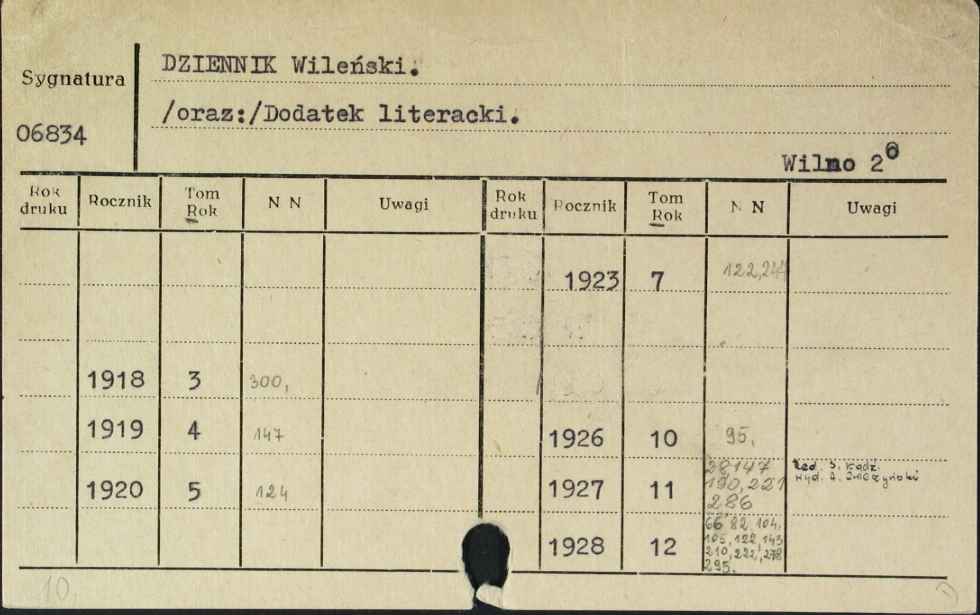 DZIENNIK Wileński.
Sygnatura
/oraz:/Dodatek literacki.
06834
Wilno 2⁰
Rok druku Rocznik Tom Rok N N Uwagi Rok druku Rocznik Tom Rok N N Uwagi
1923 7 122,
1918 3 300,
1919 4 147
1926 10 95.
1920 5 124
1927 11 28 147
190, 221
286
Red. S.
Wyd. A.
1928 12 66 82, 104,
105, 122, 143
210, 222, 278
295.
10.